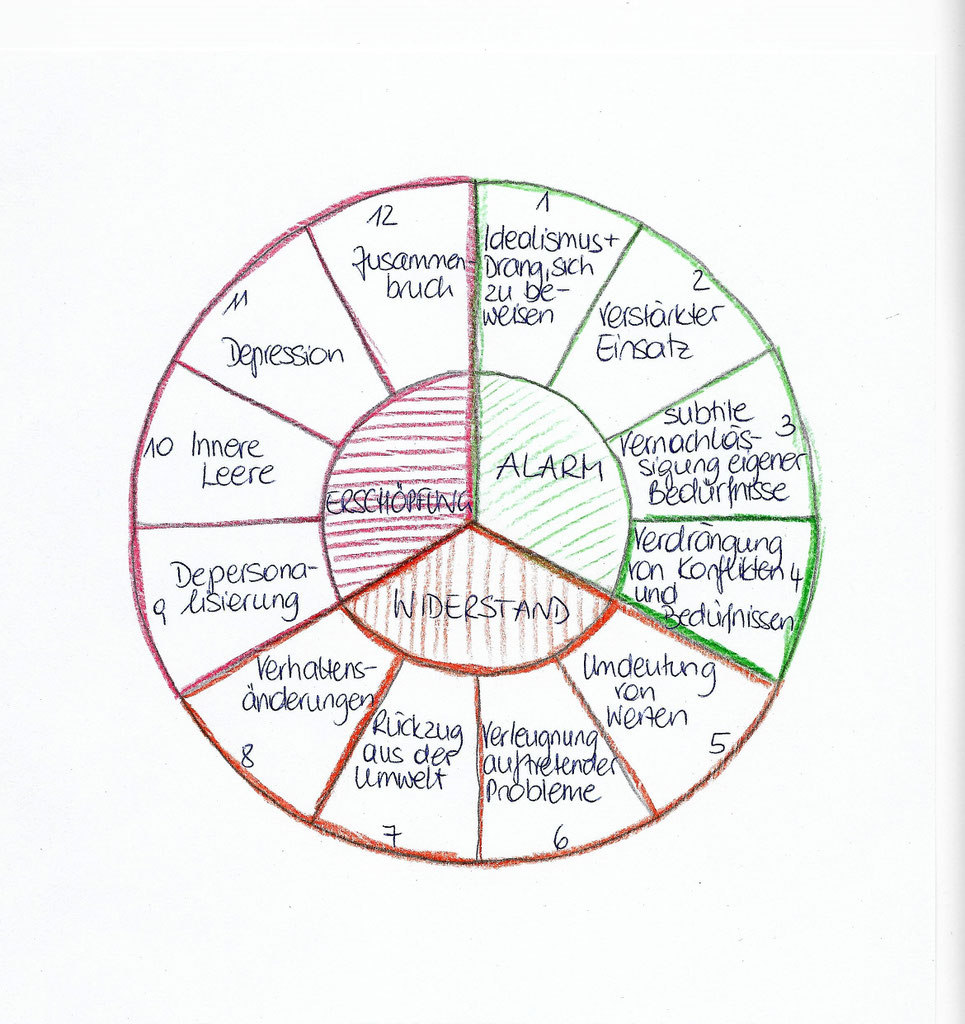 1
Idealismus+
Drang, sich
zu be-
weisen
2
verstärkter
Einsatz
3
subtile
Vernachläs-
sigung eigener
Bedürfnisse
4
Verdrängung
von Konflikten
und
Bedürfnissen
5
Umdeutung
von
Werten
6
Verleugnung
auftretender
Probleme
7
Rückzug
aus der
Umwelt
8
Verhaltens-
änderungen
9
Depersona-
lisierung
10
Innere
Leere
11
Depression
12
Zusammen-
bruch
ALARM
WIDERSTAND
ERSCHÖPFUNG